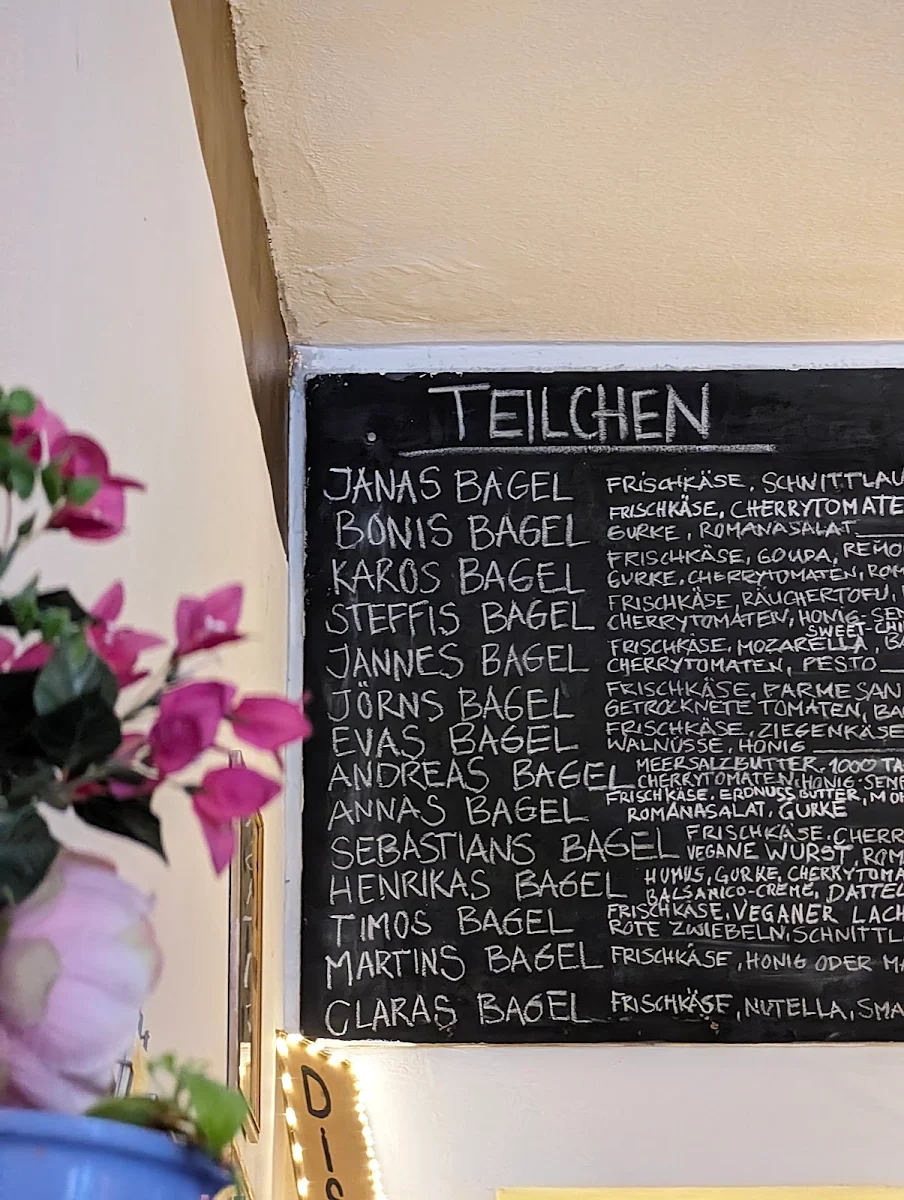 TEILCHEN
JANAS BAGEL FRISCHKÄSE, SCHNITTLAU
BONIS BAGEL FRISCHKÄSE, CHERRYTOMATE
GURKE, ROMANASALAT
KAROS BAGEL FRISCHKÄSE, GOUDA, REMO
GURKE, CHERRYTOMATEN, ROM
STEFFIS BAGEL FRISCHKÄSE, RÄUCHERTOFU,
CHERRYTOMATEN, HONIG-SEN
SWEET-CHI
JANNES BAGEL FRISCHKÄSE, MOZARELLA, BA
CHERRYTOMATEN, PESTO
JÖRNS BAGEL FRISCHKÄSE, PARMESAN
GETROCKNETE TOMATEN, BA
EVAS BAGEL FRISCHKÄSE, ZIEGENKÄSE
WALNÜSSE, HONIG
ANDREAS BAGEL MEERSALZBUTTER, 1000 TA
CHERRYTOMATEN, HONIG-SENF
ANNAS BAGEL FRISCHKÄSE, ERDNUSSBUTTER, MÖH
ROMANASALAT, GURKE
SEBASTIANS BAGEL FRISCHKÄSE, CHERR
VEGANE WURST, ROM
HENRIKAS BAGEL HUMUS, GURKE, CHERRYTOMA
BALSAMICO-CREME, DATTEL
TIMOS BAGEL FRISCHKÄSE, VEGANER LACH
ROTE ZWIEBELN, SCHNITTL
MARTINS BAGEL FRISCHKÄSE, HONIG ODER MA
CLARAS BAGEL FRISCHKÄSE, NUTELLA, SMA
DIS